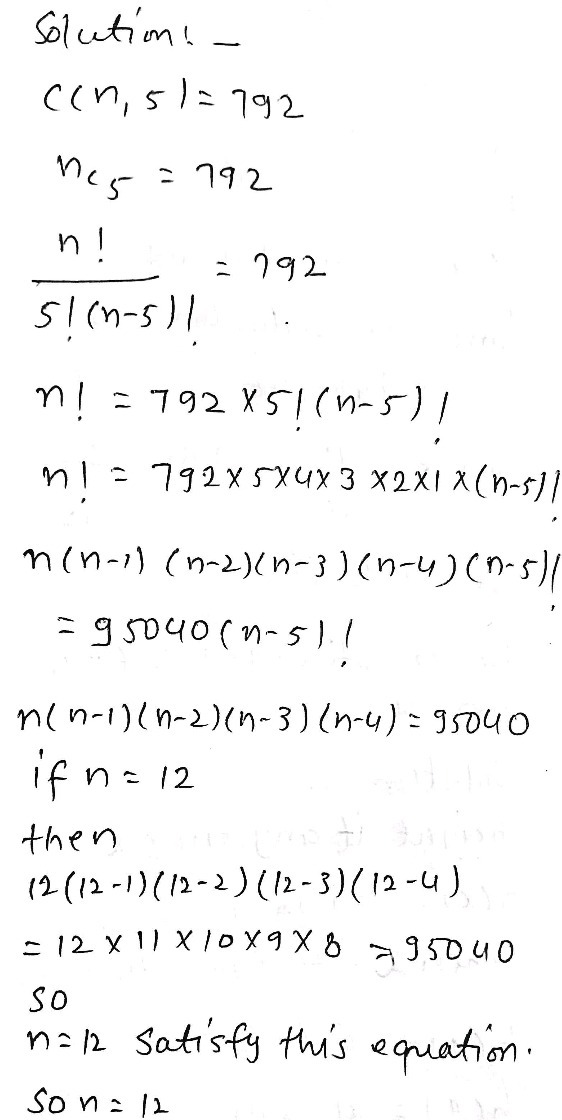 Solution: -
C(n, 5) = 792
nc5 = 792
n!
5!(n-5)! = 792
n! = 792 × 5!(n-5)!
n! = 792 × 5 × 4 × 3 × 2 × 1 × (n-5)!
n(n-1) (n-2)(n-3)(n-4)(n-5)!
= 95040(n-5)!
n(n-1)(n-2)(n-3)(n-4) = 95040
if n = 12
then
12(12-1)(12-2)(12-3)(12-4)
= 12 × 11 × 10 × 9 × 8 = 95040
so
n=12 satisfy this equation.
so n = 12